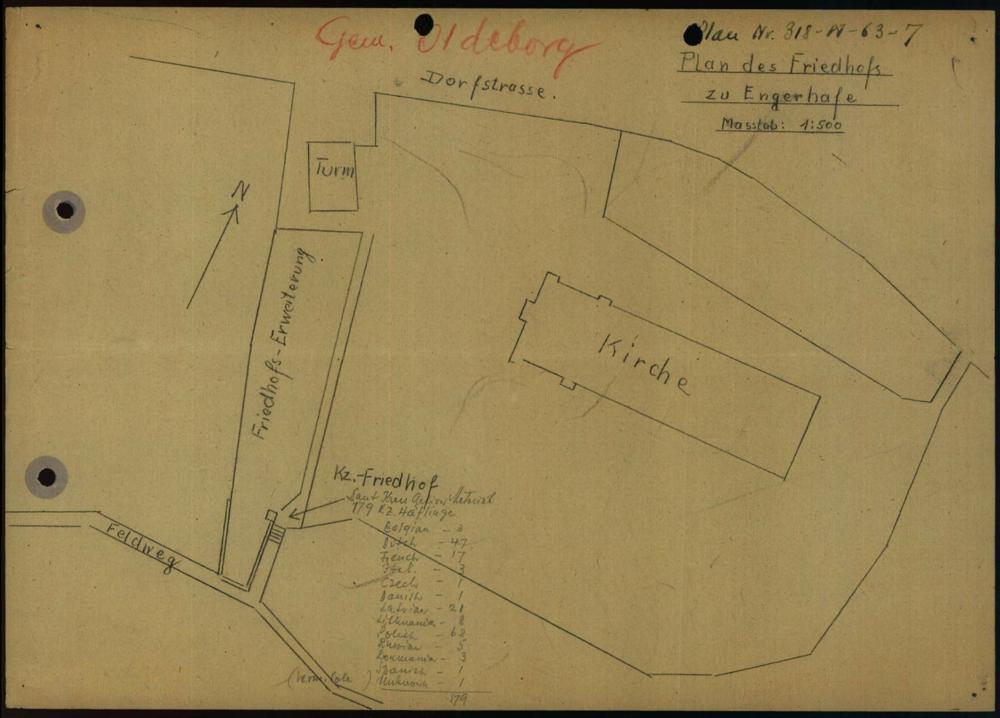 Gem. Oldeborg
Plan Nr. 318-N-63-7
Plan des Friedhofs
zu Engerhafe
Masstab: 1:500
Dorfstrasse.
Turm
N
Friedhofs-Erweiterung
Kirche
Kz.-Friedhof
179 Kz. Häftlinge
Belgian - 3
Dutch - 47
French - 17
Ital. - 3
Czech - 1
Danish - 1
Latvian - 21
Lithuania - 8
Polish - 68
Russian - 5
Roumania - 3
Spanish - 1
Unknown - 1
179
Feldweg